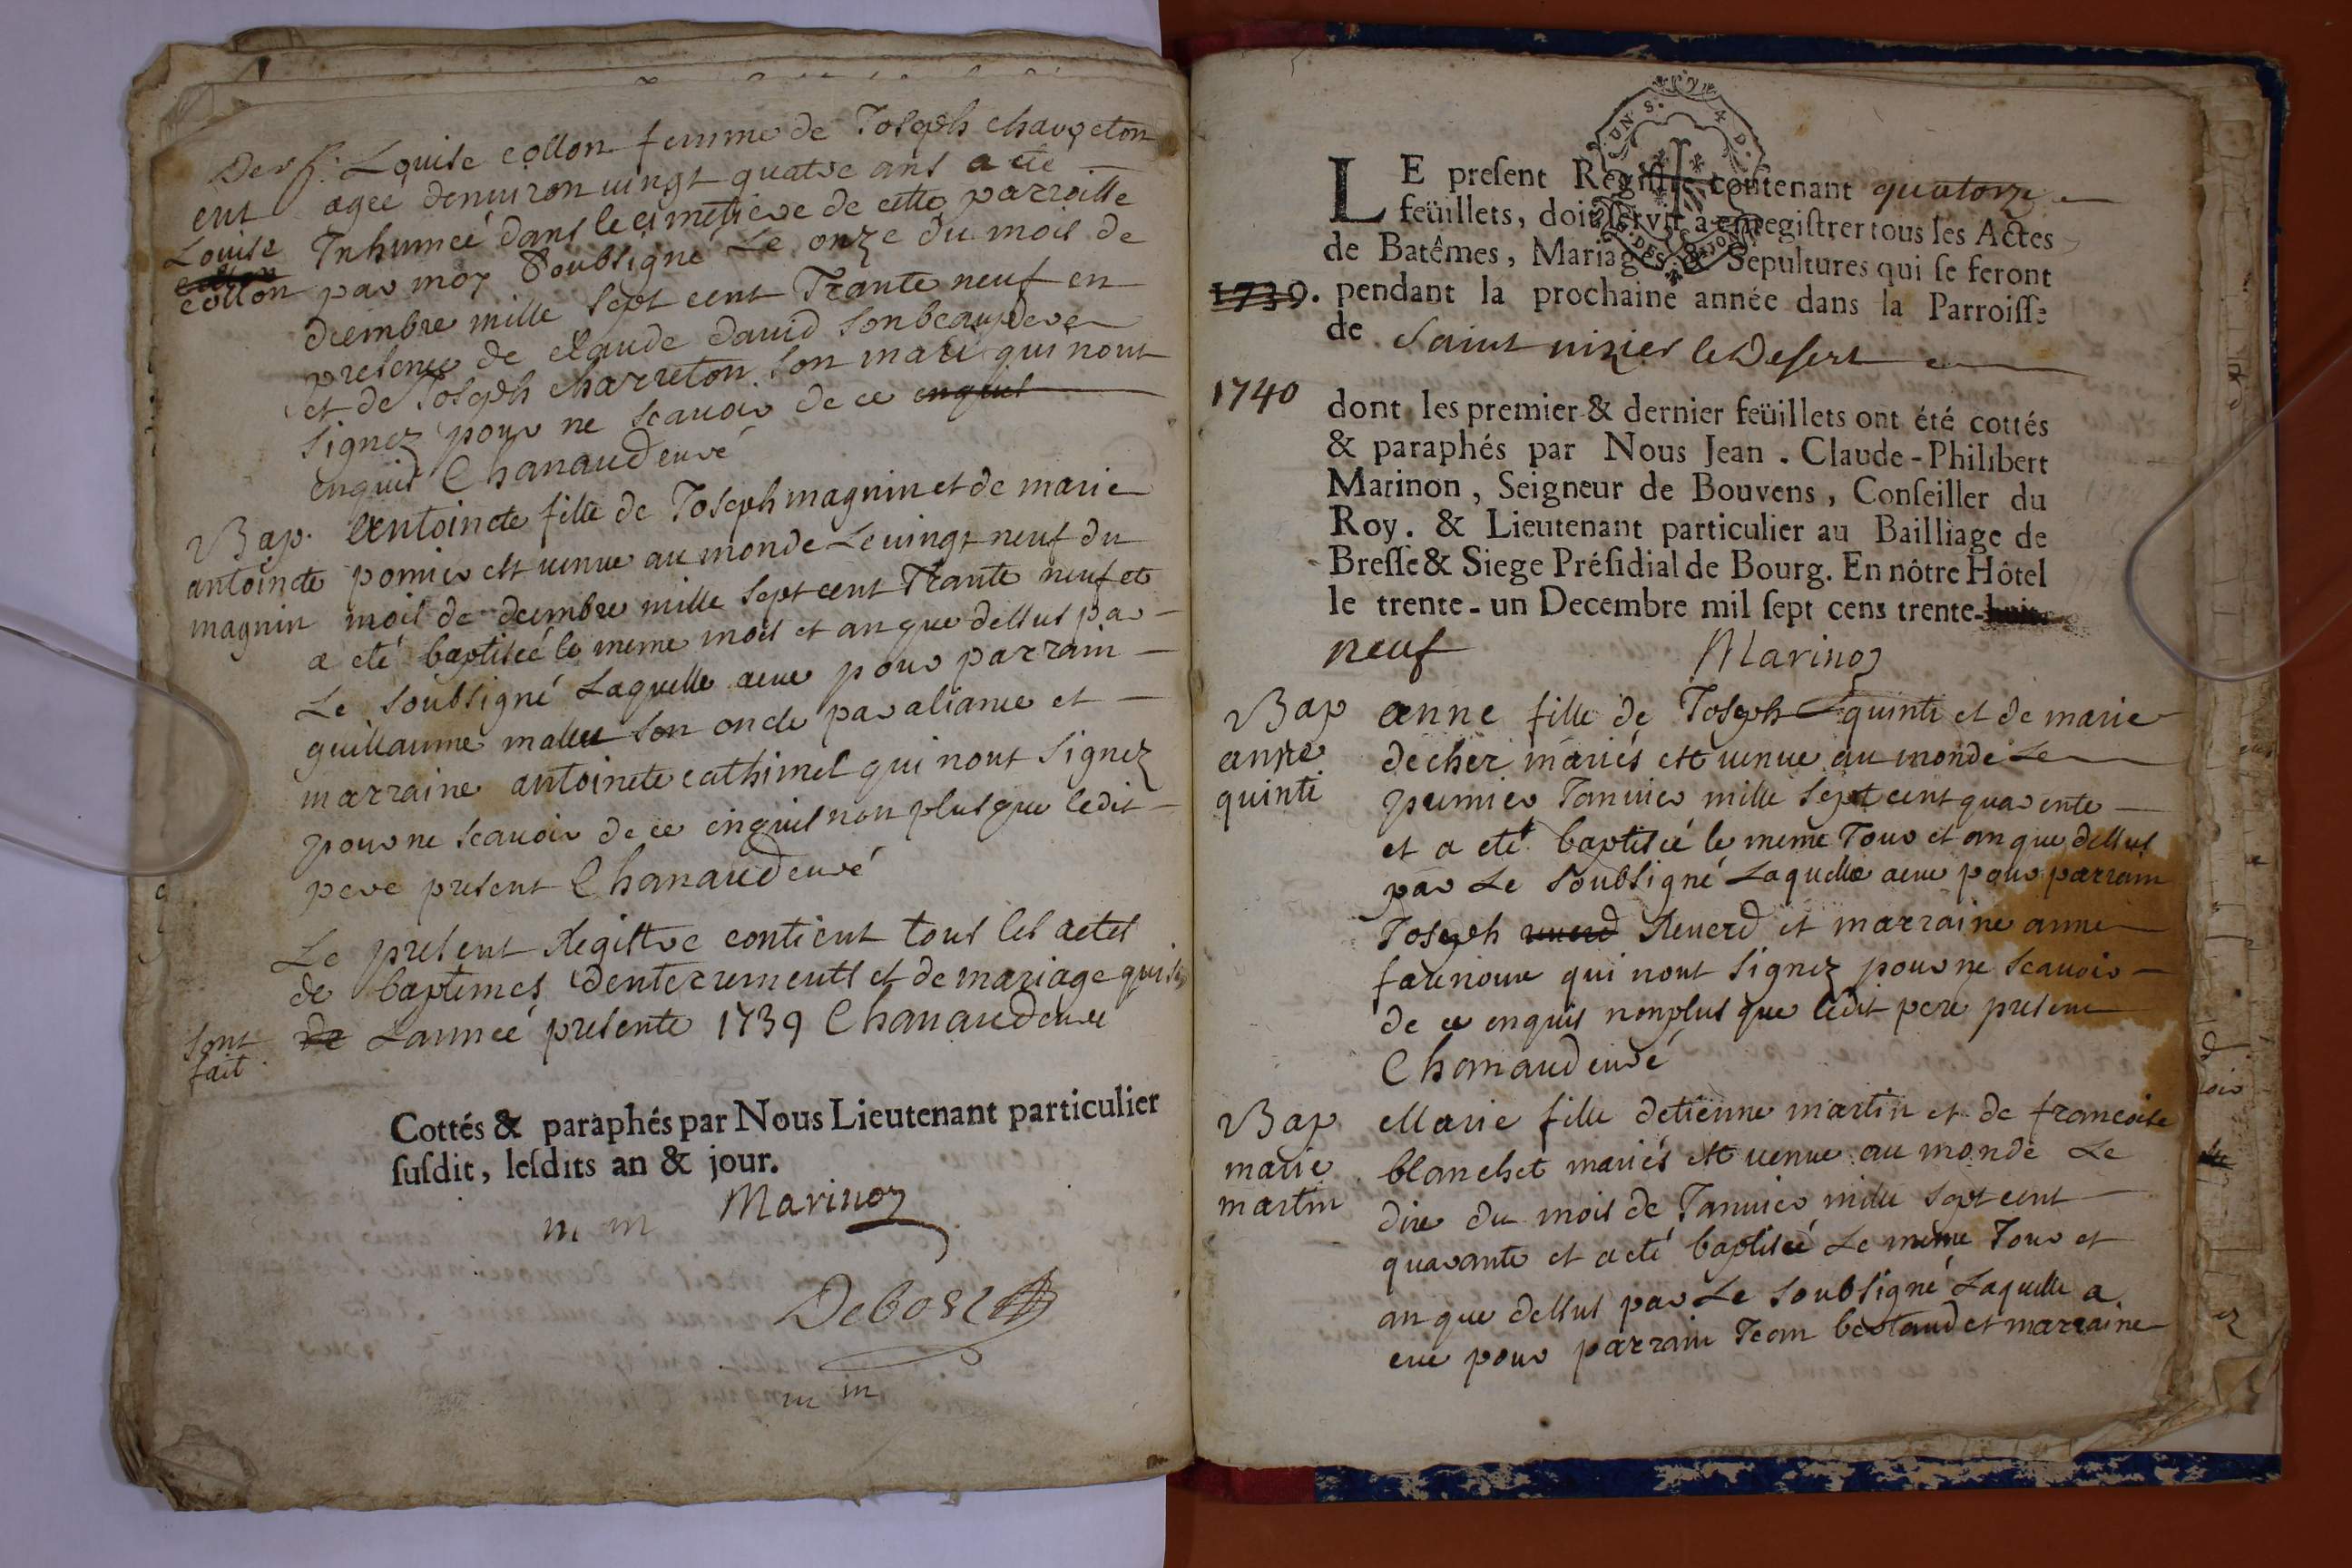 Louise collon femme de Joseph chareton
ent agée denuiron uingt quatre ans a eté
Louise Inhumeé dans le cimetiere de cette parroisse
collon par moy Soubsigné Le onze du mois de
decembre mille sept cent Trante neuf en
presence de claude dauid son beaupere
et de Joseph charreton son mari qui nont
signez pour ne scauoir de ce enquis
enquis Chanaudeuré
Bap. antoinete fille de Joseph magnin et de marie
antoinete pomier est uenue au monde Le uingt neuf du
magnin mois de decembre mille sept cent Trante neuf et
a eté baptiseé le meme mois et an que dessus par
Le soubsigné Laquelle aeue pour parrain
guillaume son oncle par aliance et
marraine antoinete cathimel qui nont signez
pour ne scauoir de ce enquis non plus que ledit
pere present Chanaudeuré
Le present Registre contient tous les actes
de baptemes denterrements et de mariage qui se
sont fait de Lanneé presente 1739 Chanaudeuré
Cottés & paraphés par Nous Lieutenant particulier
susdit, lesdits an & jour.
m m Marinon
Debost
m m
UN S. 4 D.
LE present Registre contenant quatorze
feüillets, doit servir à enregistrer tous les Actes
de Batêmes, Mariages & Sepultures qui se feront
1739. pendant la prochaine année dans la Parroisse
de Saint nizier le Desert
1740 dont les premier & dernier feüillets ont été cottés
& paraphés par Nous Jean-Claude-Philibert
Marinon, Seigneur de Bouvens, Conseiller du
Roy. & Lieutenant particulier au Bailliage de
Bresse & Siege Présidial de Bourg. En nôtre Hôtel
le trente-un Decembre mil sept cens trente-huit.
neuf Marinon
Bap anne fille de Joseph quinti et de marie
anne decher mariés est uenue au monde Le
quinti premier Januier mille sept cent quarente
et a eté baptiseé le meme Jour et an que dessus
par Le soubsigné Laquelle aeue pour parrain
Joseph reuerd Reuerd et marraine anne
farenoux qui nont signez pour ne scauoir
de ce enquis nonplus que ledit pere present
Chanaudeuré
Bap Marie fille detienne martin et de francoise
marie blanchet mariés est uenue au monde Le
martin dix du mois de Januier mille sept cent
quarante et a eté baptiseé Le meme Jour et
an que dessus par Le soubsigné Laquelle a
eue pour parrain Jean bertaud et marraine